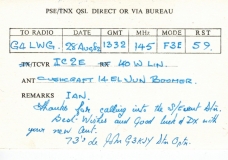 PSE/TNX QSL DIRECT OR VIA BUREAU
TO RADIO DATE GMT MHz MODE RST
G4LWG. 28 Aug 82 1332 145 F3E 59.
TX/TCVR IC2E RX 40W LIN.
ANT CUSHCRAFT 14 EL JUN BOOMER.
REMARKS IAN.
Thanks for calling into the S/Event Stn.
Best Wishes and Good luck & Dx with
your new Ant.
73's de John Stn Optr.